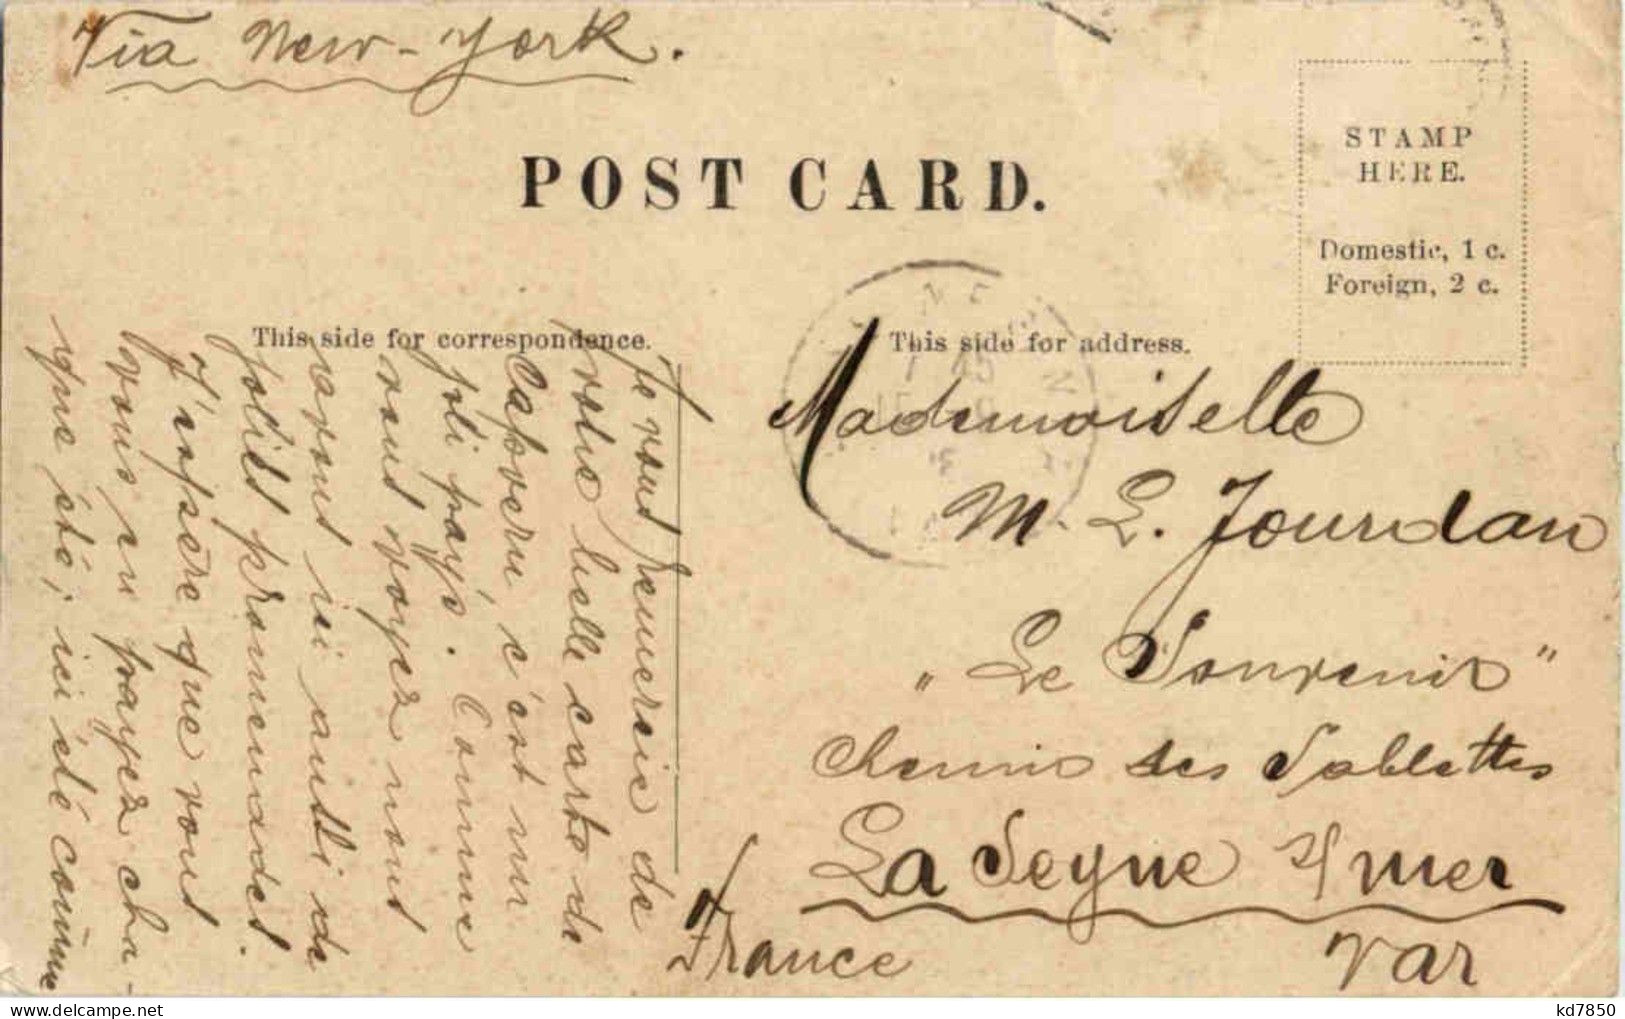 Via New-York.
POST CARD.
STAMP
HERE.
Domestic, 1 c.
Foreign, 2 c.
This side for correspondence.
This side for address.
Je vous remercie de
votre belle carte de
c'est un
joli pays. Comme
vous voyez nous
avons ici aussi de
jolies promenades.
J'espère que vous
vous en payez cha-
que été; ici été comme
Mademoiselle
M. L. Jourdan
"Le Souvenir"
Chemin des Sablettes
La Seyne s/mer
France
Var
kd7850